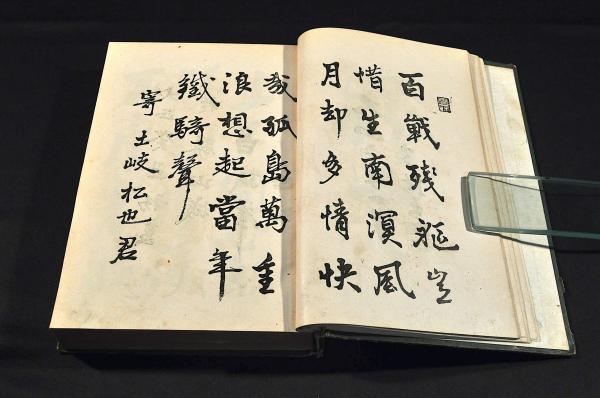 百戰残躯豈
惜生南溟風
月却多情快
哉孤島萬重
浪想起當年
鐵騎聲
寄土岐松也君